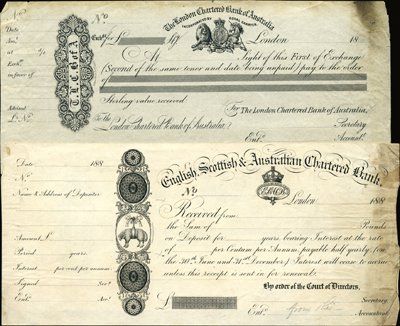 No
Date
Am!
at
Exch.
in favor of
Advised
L. No.
T.L.C.B of A
The London Chartered Bank of Australia
INCORPORATED BY ROYAL CHARTER
Exch. for £ No London 18
At Sight of this First of Exchange
(Second of the same tenor and date being unpaid) pay to the order
Sterling value received
For The London Chartered Bank of Australia,
To the Secretary
London Chartered Bank of Australia Entd. Accountt.
Date 188
No.
Name & Address of Depositor
Amount, £
Period years.
Interest per cent per annum
Signed Secy.
Entd. Acct.
English, Scottish & Australian Chartered Bank.
No
London 188
Received from
the Sum of Pounds
on Deposit for years bearing Interest at the rate
of per Centum per Annum payable half yearly, (on
the 30th June and 31st December) Interest will cease to accrue
unless this receipt is sent in for renewal.
By order of the Court of Directors,
£ Secretary.
Entd. Accountant.